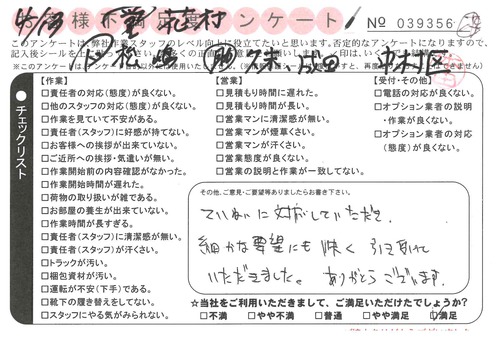 お客様不満足度アンケート
No 039356
このアンケートは、弊社作業スタッフのレベル向上に役立てたいと思います。否定的なアンケートになりますので、
【作業】
□責任者の対応(態度)が良くない。
□他のスタッフの対応(態度)が良くない。
□作業を見ていて不安がある。
□責任者(スタッフ)に好感が持てない。
□お客様への挨拶が出来ていない。
□ご近所への挨拶・気遣いが無い。
□作業開始前の内容確認がなかった。
□作業開始時間が遅れた。
□荷物の取り扱いが雑である。
□お部屋の養生が出来ていない。
□作業時間が長すぎる。
□責任者(スタッフ)に清潔感が無い。
□責任者(スタッフ)が汗くさい。
□トラックが汚い。
□梱包資材が汚い。
□運転が不安(下手)である。
□靴下の履き替えをしてない。
□スタッフにやる気がみられない。
【営業】
□見積もり時間に遅れた。
□見積もり時間が長い。
□営業マンに清潔感が無い。
□営業マンが煙草くさい。
□営業マンが汗くさい。
□営業態度が良くない。
□営業の説明と作業が一致してない。
【受付・その他】
□電話の対応が良くない。
□オプション業者の説明
・作業が良くない。
□オプション業者の対応
(態度)が良くない。
チェックリスト
その他、ご意見・ご要望等ありましたらお書き下さい。
ていねいに対応していただき、
細かな要望にも快く引き受けて
いただきました。ありがとうございます。
☆当社をご利用いただきまして、ご満足いただけたでしょうか?
□不満 □やや不満 □普通 □やや満足 □満足